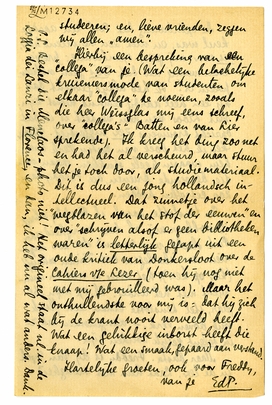 M12734
studeeren; en, lieve vrienden, zeggen
wij allen „amen".
Hierbij een bespreking van een
„collega" van je. (Wat een hebbelijke
kruieniersmode van studenten om
elkaar „collega" te noemen, zooals
die heer Weissglas mij eens schreef,
over „collega's" Batten en van Lier
sprekende). Ik kreeg het ding zoo net
en had het al verscheurd, maar stuur
het je toch door, als studiemateriaal.
Dit is dus een jong hollandsch in-
tellectueel. Dat zinnetje over het
"wegblazen van het stof der eeuwen" en
over "schrijven alsof er geen bibliotheken
waren" is letterlijk gegapt uit een
oude kritiek van Donkersloot over de
Cahiers v/e Lezer (toen hij nog niet
met mij gebrouilleerd was). Maar het
onthullendste voor mij is: dat hij zich
bij de krant nooit verveeld heeft.
Wat een gelukkige inborst heeft die
knaap! Wat een smaak, gepaard aan verstand.
Hartelijke groeten, ook voor Freddy,
van je EdP.
P.S. Bedankt die Menelaos-photo niet! Het origineel staat nl. in de
Loggia dei Lanzi in Florence, en kan, ik heb nu al wat anders. Dank.